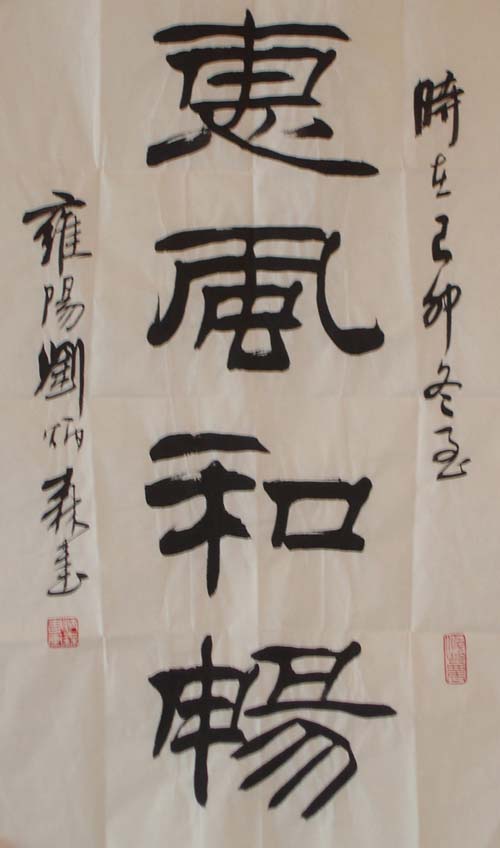 時在己卯冬至
惠風和暢
雍陽劉炳森書